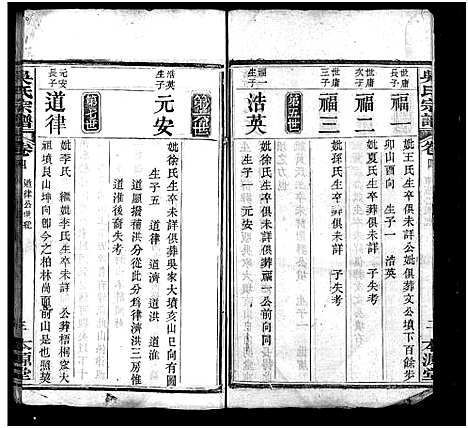 吳氏宗譜
卷四
二
本源堂
世庸長子
福一
妣王氏生卒俱未詳公妣俱葬文公墳下百餘步
卯山酉向 生子一 浩英
世庸二子
福二
妣夏氏生卒葬俱未詳 子失考
世庸三子
福三
妣孫氏生卒葬俱未詳 子失考
第五世
福一子
浩英
妣徐氏生卒俱未詳俱葬福一公前
生子一 元安
第六世
浩英子
元安
妣徐氏生卒未詳俱葬吳家大墳亥山巳向有圖
生子五 道律 道濟 道洪 道淮
道洪分從此分爲律濟洪三房惟
道淮後裔失考
第七世
元安長子
道律
妣李氏 繼妣李氏生卒俱未詳 公葬梧桐窠大
祖墳艮山坤向即今之柏林尚頭前山是也照契
吳氏宗譜
卷四
道律公世系
三
本源堂